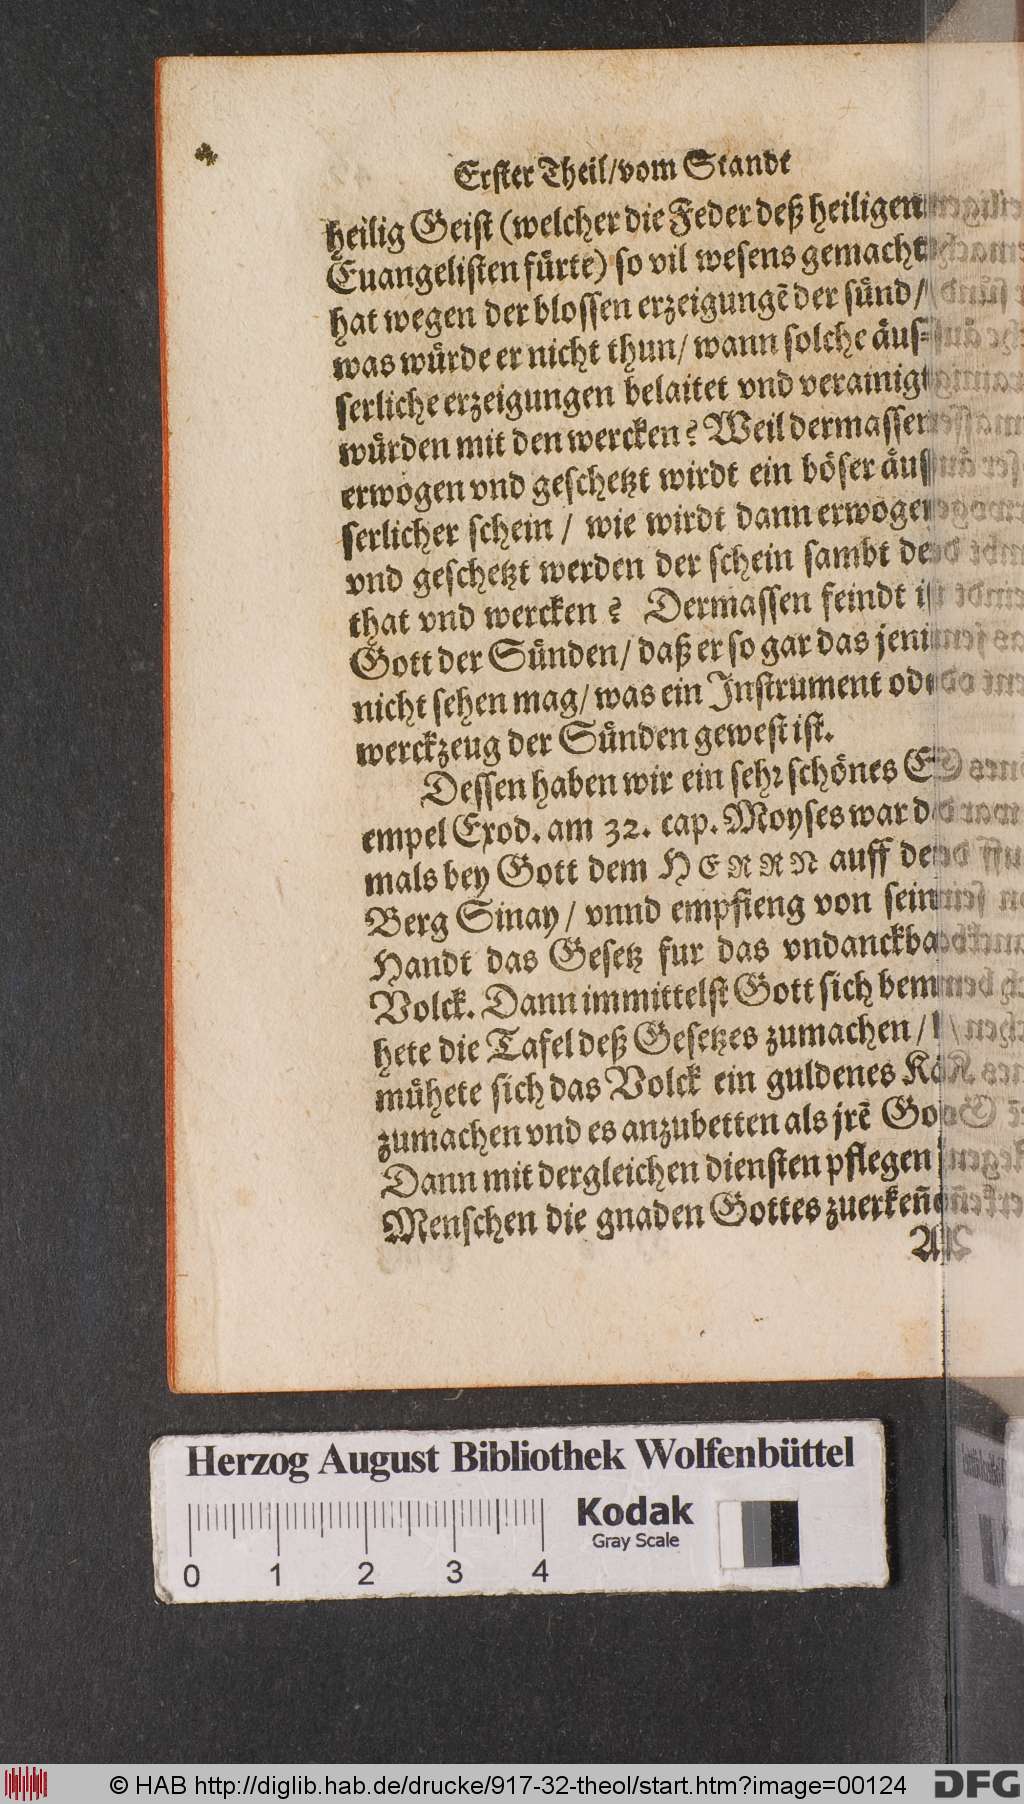 Erster Theil/vom Standt
heilig Geist (welcher die Feder deß heiligen
Euangelisten fürte) so vil wesens gemacht
hat wegen der blossen erzeigungē der sünd/
was würde er nicht thun/ wann solche äus-
serliche erzeigungen belaitet vnd verainigt
würden mit den wercken? Weil dermassen
erwogen vnd geschetzt wirdt ein böser äus
serlicher schein / wie wirdt dann erwogen
vnd geschetzt werden der schein sambt de
that vnd wercken? Dermassen feindt ist
Gott der Sünden/ daß er so gar das jeni
nicht sehen mag/ was ein Instrument ode
werckzeug der Sünden gewest ist.
Dessen haben wir ein sehr schönes Ex
empel Exod. am 32. cap. Moyses war da
mals bey Gott dem HERRN auff de
Berg Sinay/ vnnd empfieng von sein
Handt das Gesetz fur das vndanckba
Volck. Dann immittelst Gott sich bem
hete die Tafel deß Gesetzes zumachen/
mühete sich das Volck ein guldenes Ka
zumachen vnd es anzubetten als jrē Go
Dann mit dergleichen diensten pflegen
Menschen die gnaden Gottes zuerkeñe
Herzog August Bibliothek Wolfenbüttel
Kodak
Gray Scale
0 1 2 3 4
© HAB http://diglib.hab.de/drucke/917-32-theol/start.htm?image=00124
DFG